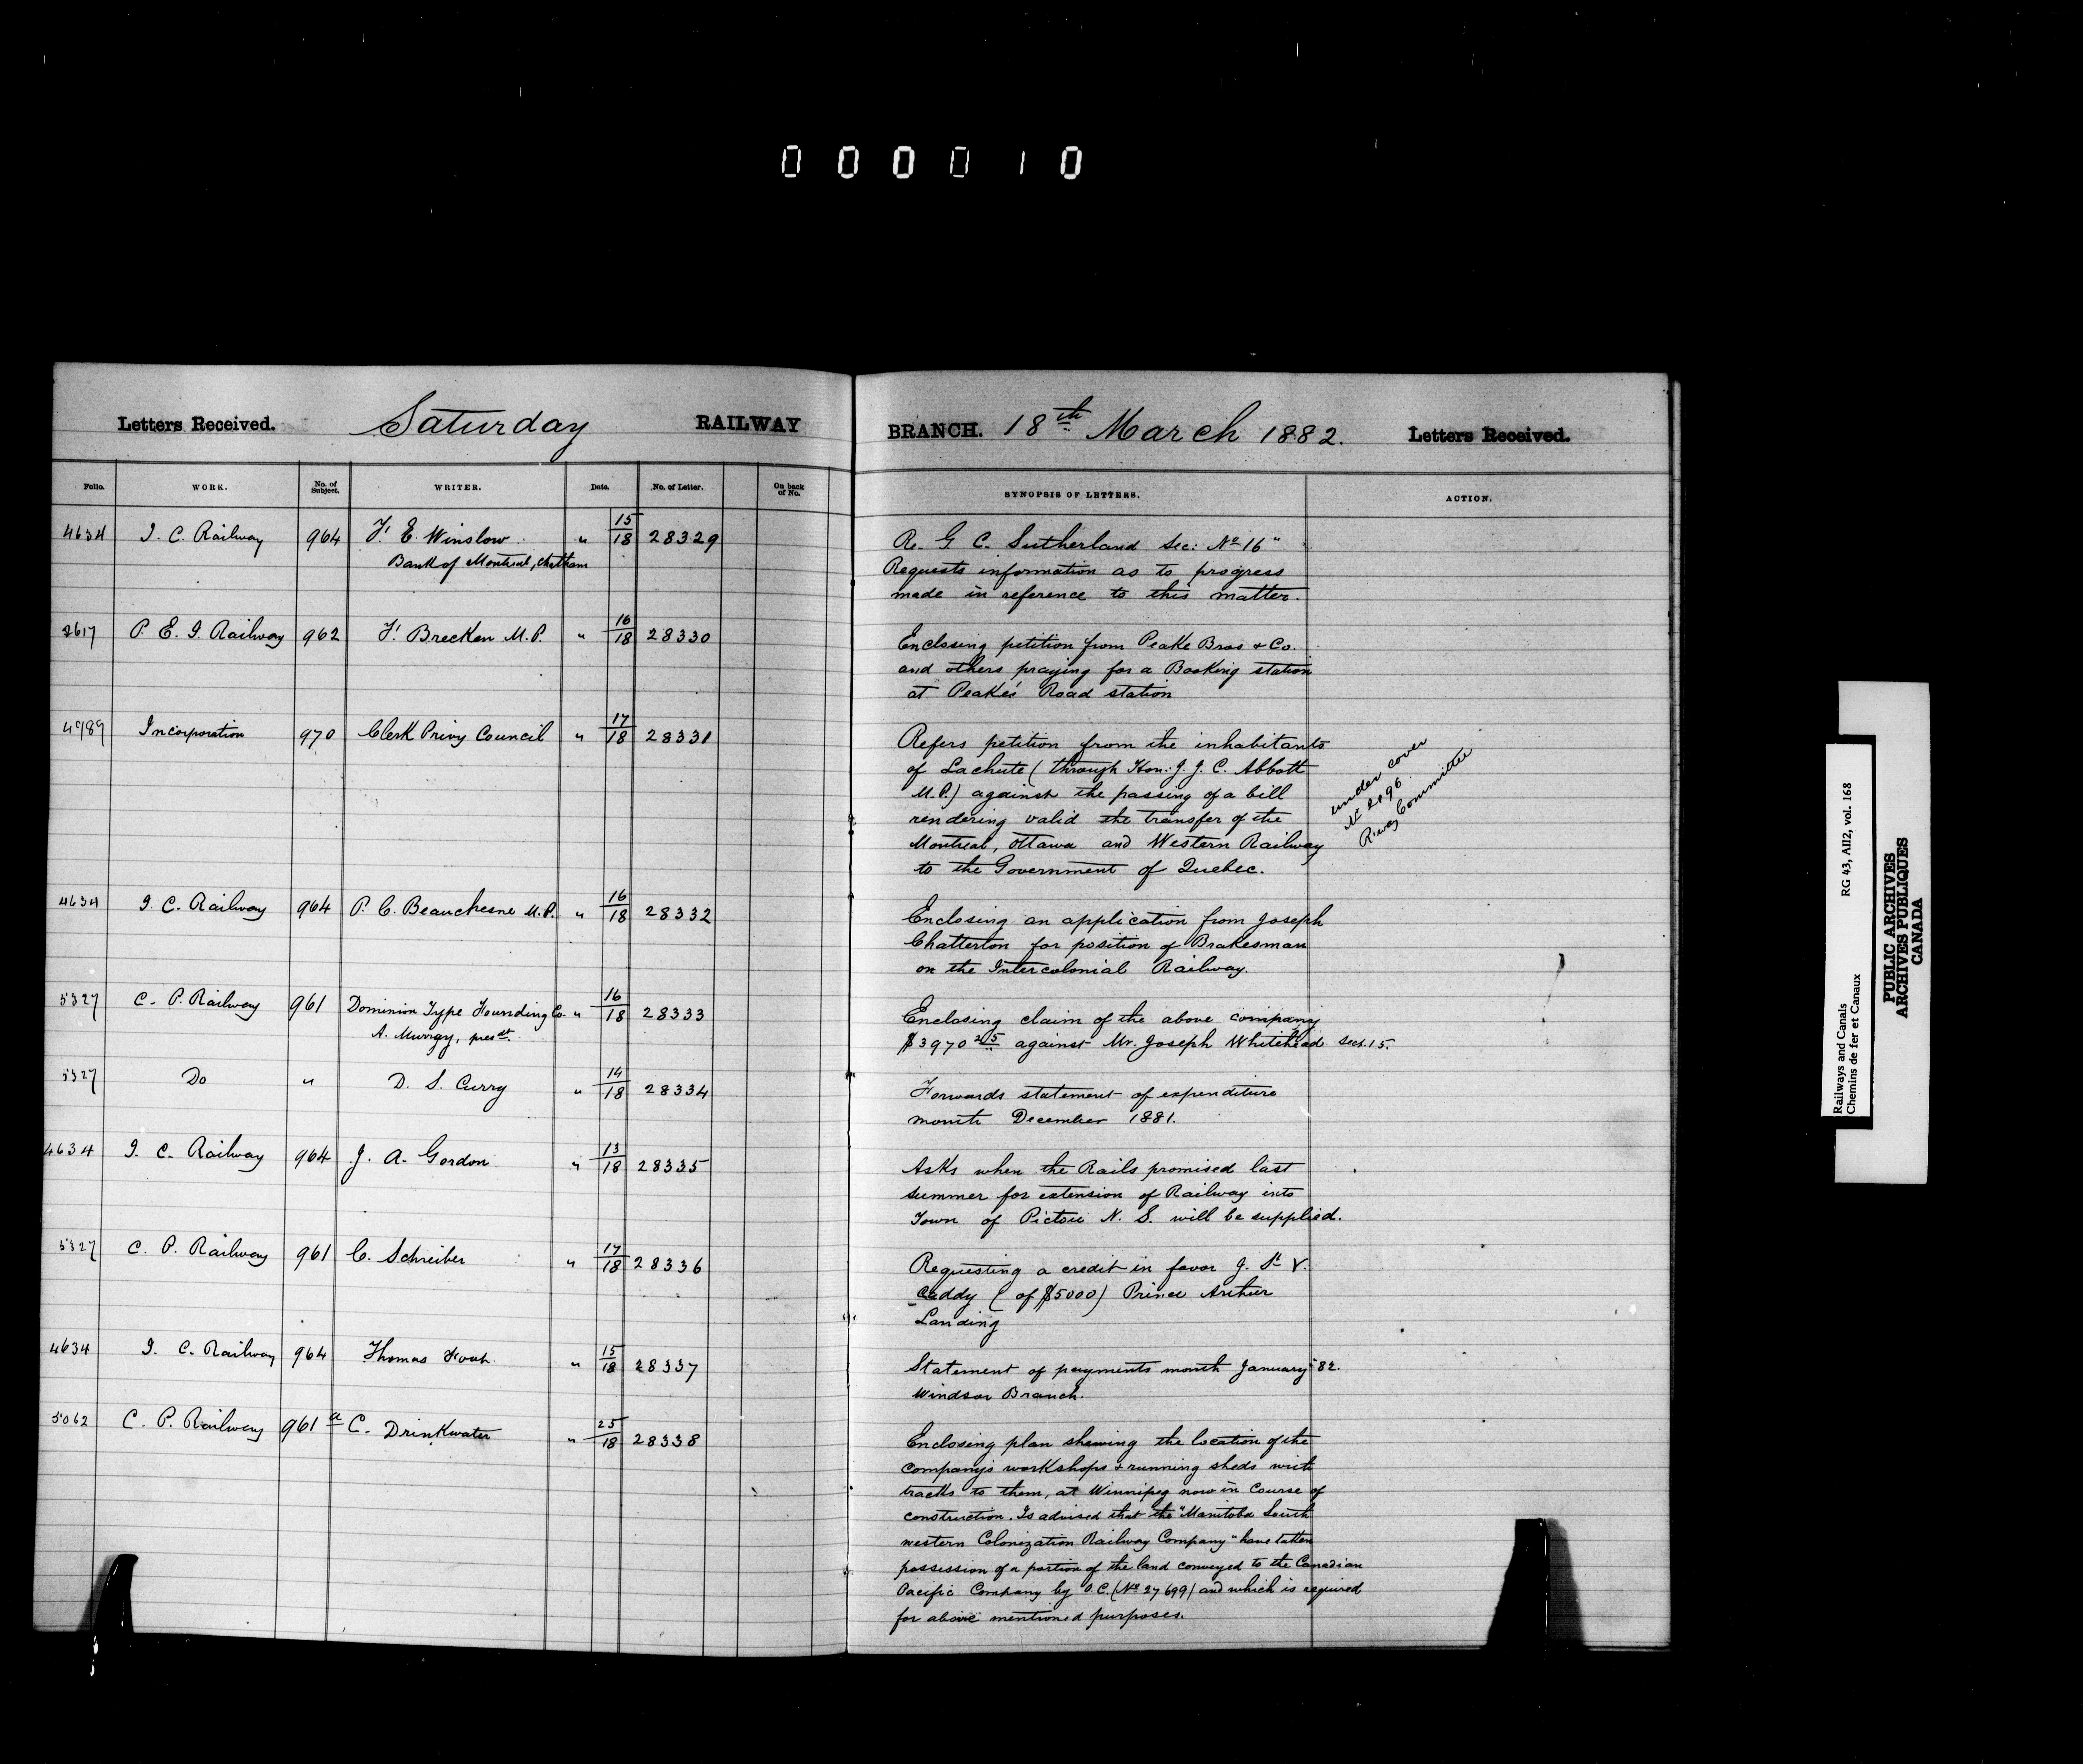 000010
Letters Received. Saturday RAILWAY BRANCH. 18th March 1882. Letters Received.
Folio. WORK. No. of Subject. WRITER. Date. No. of Letter. On back of No. SYNOPSIS OF LETTERS. ACTION.
4634 I. C. Railway 964 F. E. Winslow " 15/18 28329 Re. G C. Sutherland Sec: No 16"
Bank of Montreal, Chatham Requests information as to progress
made in reference to this matter.
2617 P. E. I. Railway 962 F. Brecken M.P. " 16/18 28330 Enclosing petition from Peake Bros & Co.
and others praying for a Booking station
at Peake's Road station
4989 Incorporation 970 Clerk Privy Council " 17/18 28331 Refers petition from the inhabitants
of Lachute (through Hon. J. J. C. Abbott
M.P.) against the passing of a bill
rendering valid the transfer of the
Montreal, Ottawa and Western Railway
to the Government of Quebec.
under cover
No 2096
R.way Committee
4634 I. C. Railway 964 P. C. Beauchesne M.P. " 16/18 28332 Enclosing an application from Joseph
Chatterton for position of Brakesman
on the Intercolonial Railway.
5327 C. P. Railway 961 Dominion Type Founding Co. " 16/18 28333 Enclosing claim of the above company
A. Murray, presdt. $3970 25 against Mr. Joseph Whitehead Sect. 15.
5327 Do " D. S. Curry " 14/18 28334 Forwards statement of expenditure
month December 1881.
4634 I. C. Railway 964 J. A. Gordon " 13/18 28335 Asks when the Rails promised last
summer for extension of Railway into
Town of Pictou N. S. will be supplied.
5327 C. P. Railway 961 C. Schreiber " 17/18 28336 Requesting a credit in favor J. St V.
Caddy (of $5000) Prince Arthur
Landing
4634 I. C. Railway 964 Thomas Foot " 15/18 28337 Statement of payments month January '82.
Windsor Branch.
5062 C. P. Railway 961a C. Drinkwater " 25/18 28338 Enclosing plan shewing the location of the
company's workshops & running sheds with
tracks to them, at Winnipeg now in course of
construction. Is advised that the "Manitoba South
western Colonization Railway Company" have taken
possession of a portion of the land conveyed to the Canadian
Pacific Company by O.C. (No 27699) and which is required
for above mentioned purposes.
Railways and Canals RG 43, AII2, vol. 168
Chemins de fer et Canaux
PUBLIC ARCHIVES
ARCHIVES PUBLIQUES
CANADA